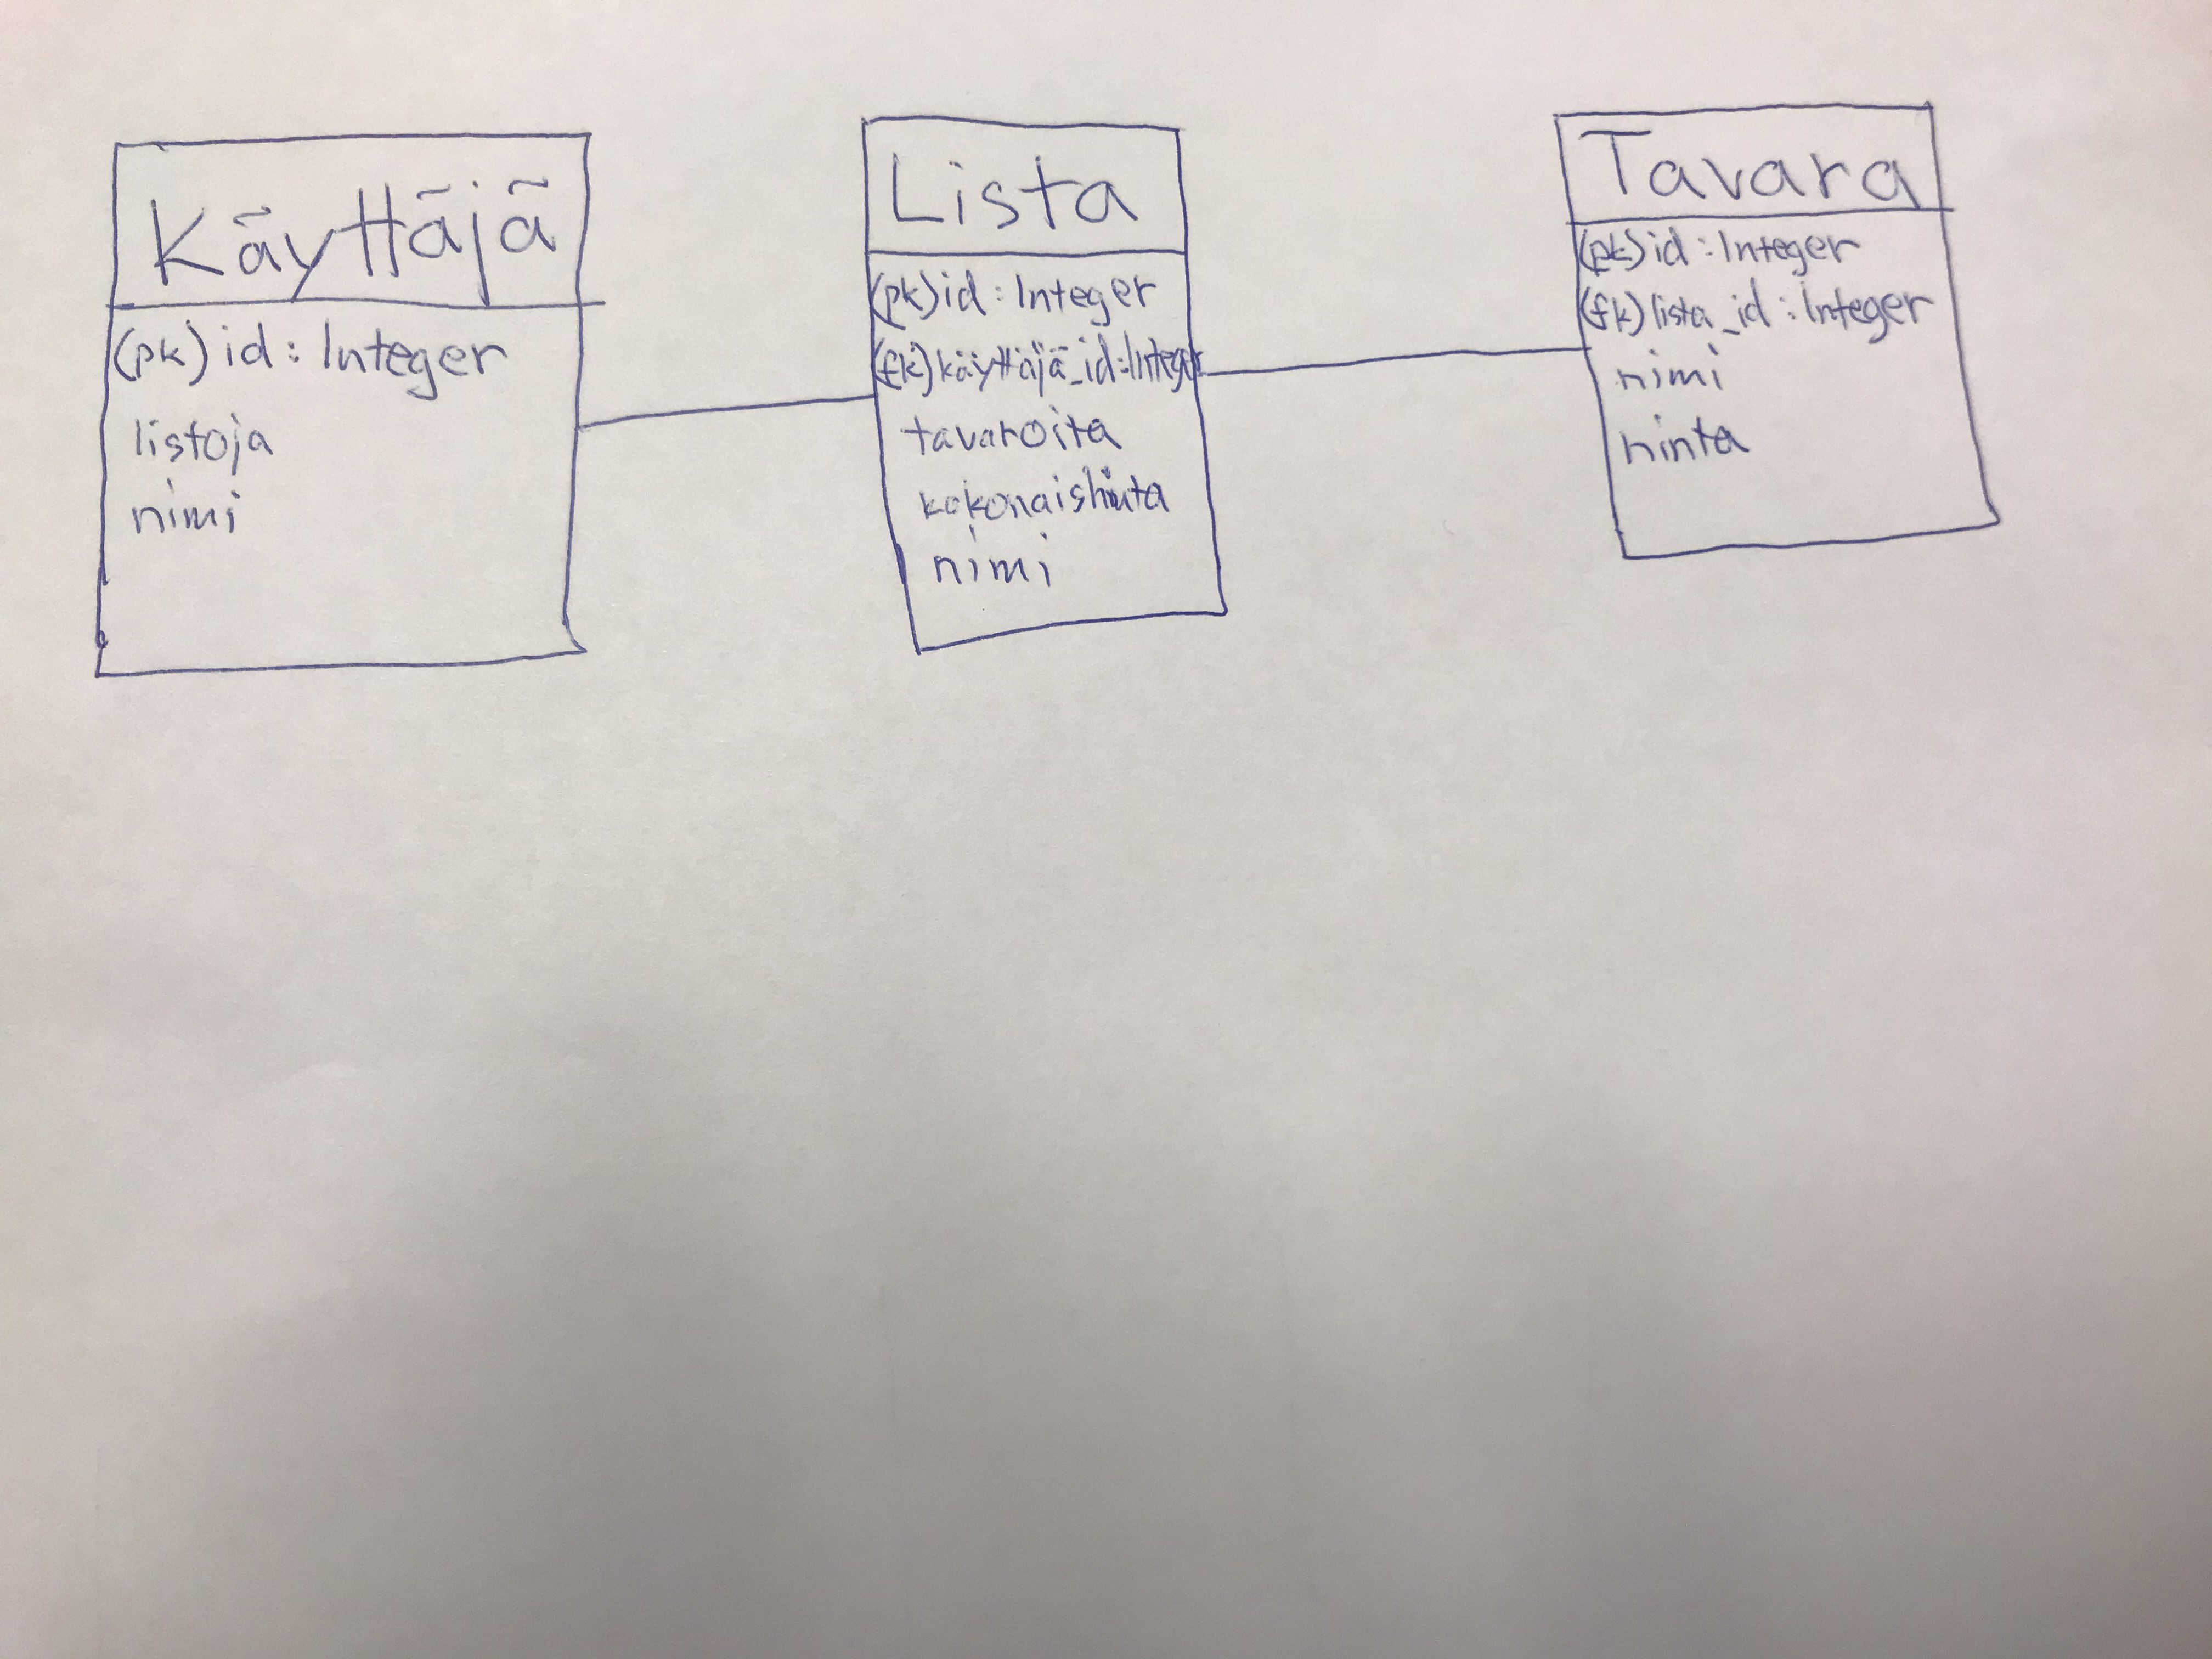 Käyttäjä
(pk) id : Integer
listoja
nimi
Lista
(pk) id : Integer
(fk) käyttäjä_id : Integer
tavaroita
kokonaishinta
nimi
Tavara
(pk) id : Integer
(fk) lista_id : Integer
nimi
hinta